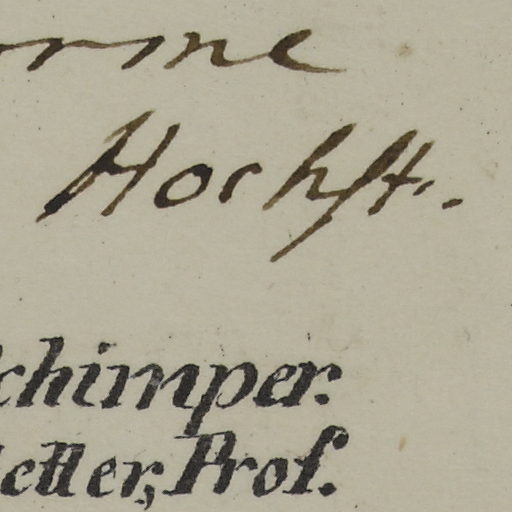 orme
Hochst.
chimper.
etter, Prof.